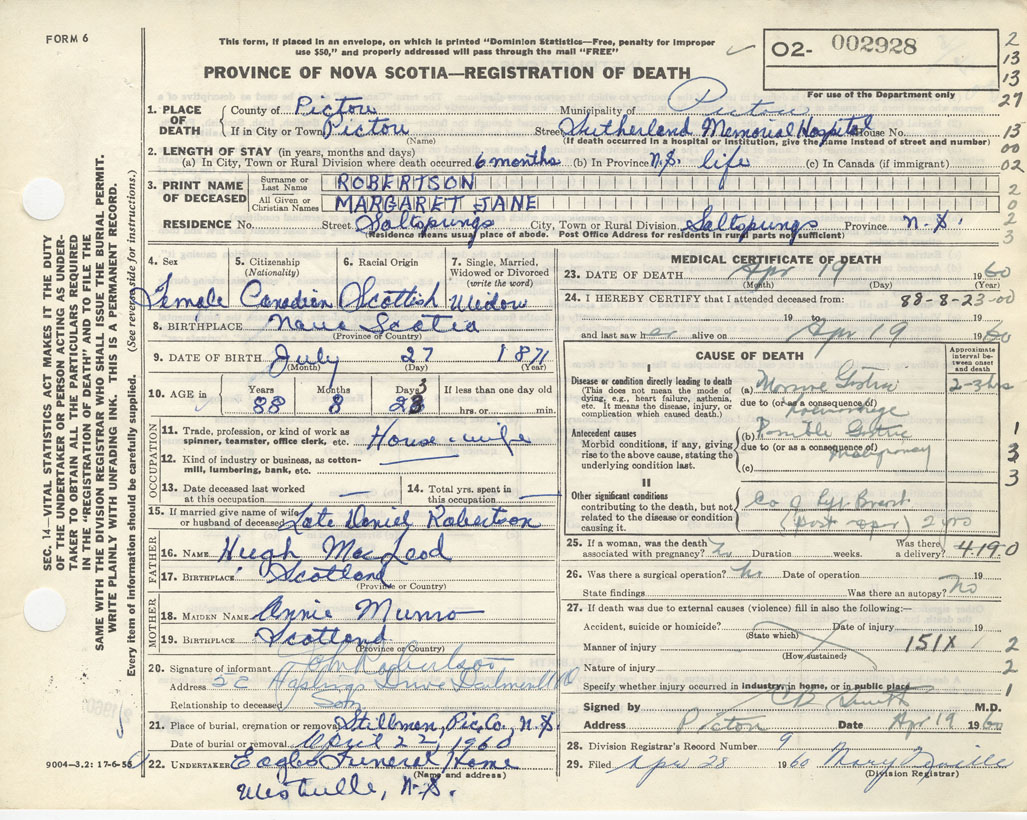 FORM 6
This form, if placed in an envelope, on which is printed "Dominion Statistics—Free, penalty for improper
use $50," and properly addressed will pass through the mail "FREE"
O2- 002928
For use of the Department only
PROVINCE OF NOVA SCOTIA—REGISTRATION OF DEATH
2
13
13
27
13
00
02
2
0
2
3
1. PLACE OF DEATH
County of Pictou Municipality of Pictou
If in City or Town Pictou Street Sutherland Memorial Hospital House No.
(Name) (If death occurred in a hospital or institution, give the name instead of street and number)
2. LENGTH OF STAY (in years, months and days)
(a) In City, Town or Rural Division where death occurred 6 months (b) In Province N.S. life (c) In Canada (if immigrant)
3. PRINT NAME OF DECEASED
Surname or Last Name ROBERTSON
All Given or Christian Names MARGARET JANE
RESIDENCE No. Street Saltsprings City, Town or Rural Division Saltsprings Province N.S.
(Residence means usual place of abode. Post Office Address for residents in rural parts not sufficient)
4. Sex Female
5. Citizenship (Nationality) Canadian
6. Racial Origin Scottish
7. Single, Married, Widowed or Divorced (write the word) Widow
8. BIRTHPLACE Nova Scotia
(Province or Country)
9. DATE OF BIRTH July 27 1871
(Month) (Day) (Year)
10. AGE in Years 88 Months 8 Days 23 If less than one day old hrs. or min.
OCCUPATION
11. Trade, profession, or kind of work as spinner, teamster, office clerk, etc. Housewife
12. Kind of industry or business, as cotton-mill, lumbering, bank, etc.
13. Date deceased last worked at this occupation —
14. Total yrs. spent in this occupation —
15. If married give name of wife or husband of deceased Late Daniel Robertson
FATHER
16. NAME Hugh MacLeod
17. BIRTHPLACE Scotland
(Province or Country)
MOTHER
18. MAIDEN NAME Annie Munro
19. BIRTHPLACE Scotland
(Province or Country)
20. Signature of informant John Robertson
Address 52 Hastings Drive
Relationship to deceased Son
21. Place of burial, cremation or removal Stillman, Pic. Co, N.S.
Date of burial or removal April 22, 1960
22. UNDERTAKER Eagles Funeral Home
(Name and address)
Westville, N.S.
9004—3.2: 17-6-58
SEC. 14—VITAL STATISTICS ACT MAKES IT THE DUTY
OF THE UNDERTAKER OR PERSON ACTING AS UNDER-
TAKER TO OBTAIN ALL THE PARTICULARS REQUIRED
IN THE "REGISTRATION OF DEATH" AND TO FILE THE
SAME WITH THE DIVISION REGISTRAR WHO SHALL ISSUE THE BURIAL PERMIT.
WRITE PLAINLY WITH UNFADING INK. THIS IS A PERMANENT RECORD.
Every item of information should be carefully supplied. (See reverse side for instructions.)
MEDICAL CERTIFICATE OF DEATH
23. DATE OF DEATH Apr 19 1960
(Month) (Day) (Year)
24. I HEREBY CERTIFY that I attended deceased from: 88-8-23-00
19 to Apr 19 1960
and last saw her alive on
CAUSE OF DEATH
Approximate interval between onset and death
I
Disease or condition directly leading to death
(This does not mean the mode of dying, e.g., heart failure, asthenia, etc. It means the disease, injury, or complication which caused death.)
(a) Massive Gastric Haemorrhage 2-3 hrs
due to (or as a consequence of)
Antecedent causes
Morbid conditions, if any, giving rise to the above cause, stating the underlying condition last.
(b) Possible Gastric Malignancy
due to (or as a consequence of)
(c)
1
3
3
II
Other significant conditions
contributing to the death, but not related to the disease or condition causing it.
Ca of Breast
(Post oper) 2 yrs
25. If a woman, was the death associated with pregnancy? No Duration weeks. Was there a delivery? 4190
26. Was there a surgical operation? No Date of operation 19
State findings Was there an autopsy? No
27. If death was due to external causes (violence) fill in also the following:—
Accident, suicide or homicide? Date of injury 19
(State which)
Manner of injury 151X 2
(How sustained)
Nature of injury 2
Specify whether injury occurred in industry, in home, or in public place 1
Signed by Smith M.D.
Address Pictou Date Apr 19 1960
28. Division Registrar's Record Number 9
29. Filed Apr 28 1960 Mary
(Division Registrar)